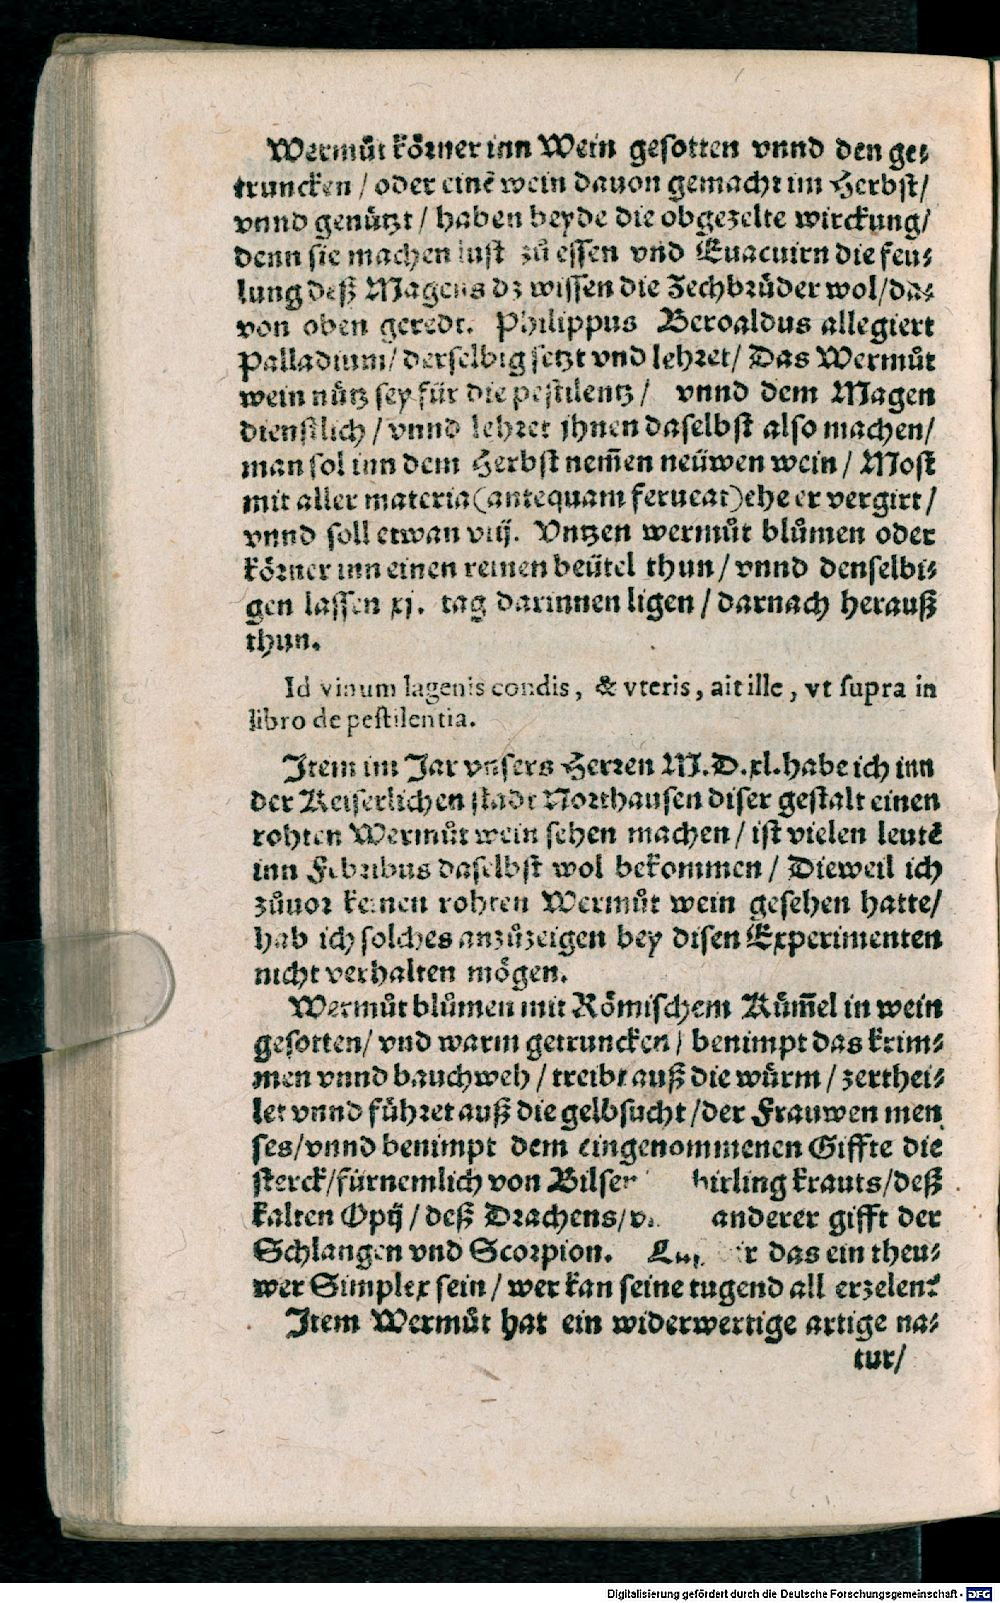 Wermůt körner inn Wein gesotten vnnd den ge⸗
truncken / oder einē wein dauon gemacht im Herbst/
vnnd genützt / haben beyde die obgezelte wirckung/
denn sie machen lust zů essen vnd Euacuirn die feu⸗
lung deß Magens dz wissen die Zechbrüder wol/da⸗
von oben geredt. Philippus Beroaldus allegiert
Palladium/ derselbig setzt vnd lehret/ Das Wermůt
wein nütz sey für die pestilentz / vnnd dem Magen
dienstlich / vnnd lehret jhnen daselbst also machen/
man sol inn dem Herbst nem̄en neüwen wein / Most
mit aller materia (antequam ferueat) ehe er vergirt /
vnnd soll etwan viij. Vntzen wermůt blůmen oder
körner inn einen reinen beütel thun / vnnd denselbi⸗
gen lassen xj. tag darinnen ligen / darnach herauß
thun.
Id vinum lagenis condis, & vteris, ait ille, vt supra in
libro de pestilentia.
Item im Jar vnsers Herren M.D.xl. habe ich inn
der Keiserlichen stadt Northausen diser gestalt einen
rohten Wermůt wein sehen machen / ist vielen leutē
inn Febribus daselbst wol bekommen / Dieweil ich
zůuor keinen rohten Wermůt wein gesehen hatte/
hab ich solches anzůzeigen bey disen Experimenten
nicht verhalten mögen.
Wermůt blůmen mit Römischem Küm̄el in wein
gesotten/ vnd warm getruncken / benimpt das krim⸗
men vnnd bauchweh / treibt auß die würm / zerthei⸗
let vnnd führet auß die gelbsucht /der Frauwen men
ses/vnnd benimpt dem eingenommenen Giffte die
sterck/fürnemlich von krauts/deß
kalten Opij / deß Drachens/ anderer gifft der
Schlangen vnd Scorpion. das ein theu⸗
wer Simplex sein / wer kan seine tugend all erzelen?
Item Wermůt hat ein widerwertige artige na⸗
tur/
Digitalisierung gefördert durch die Deutsche Forschungsgemeinschaft - DFG